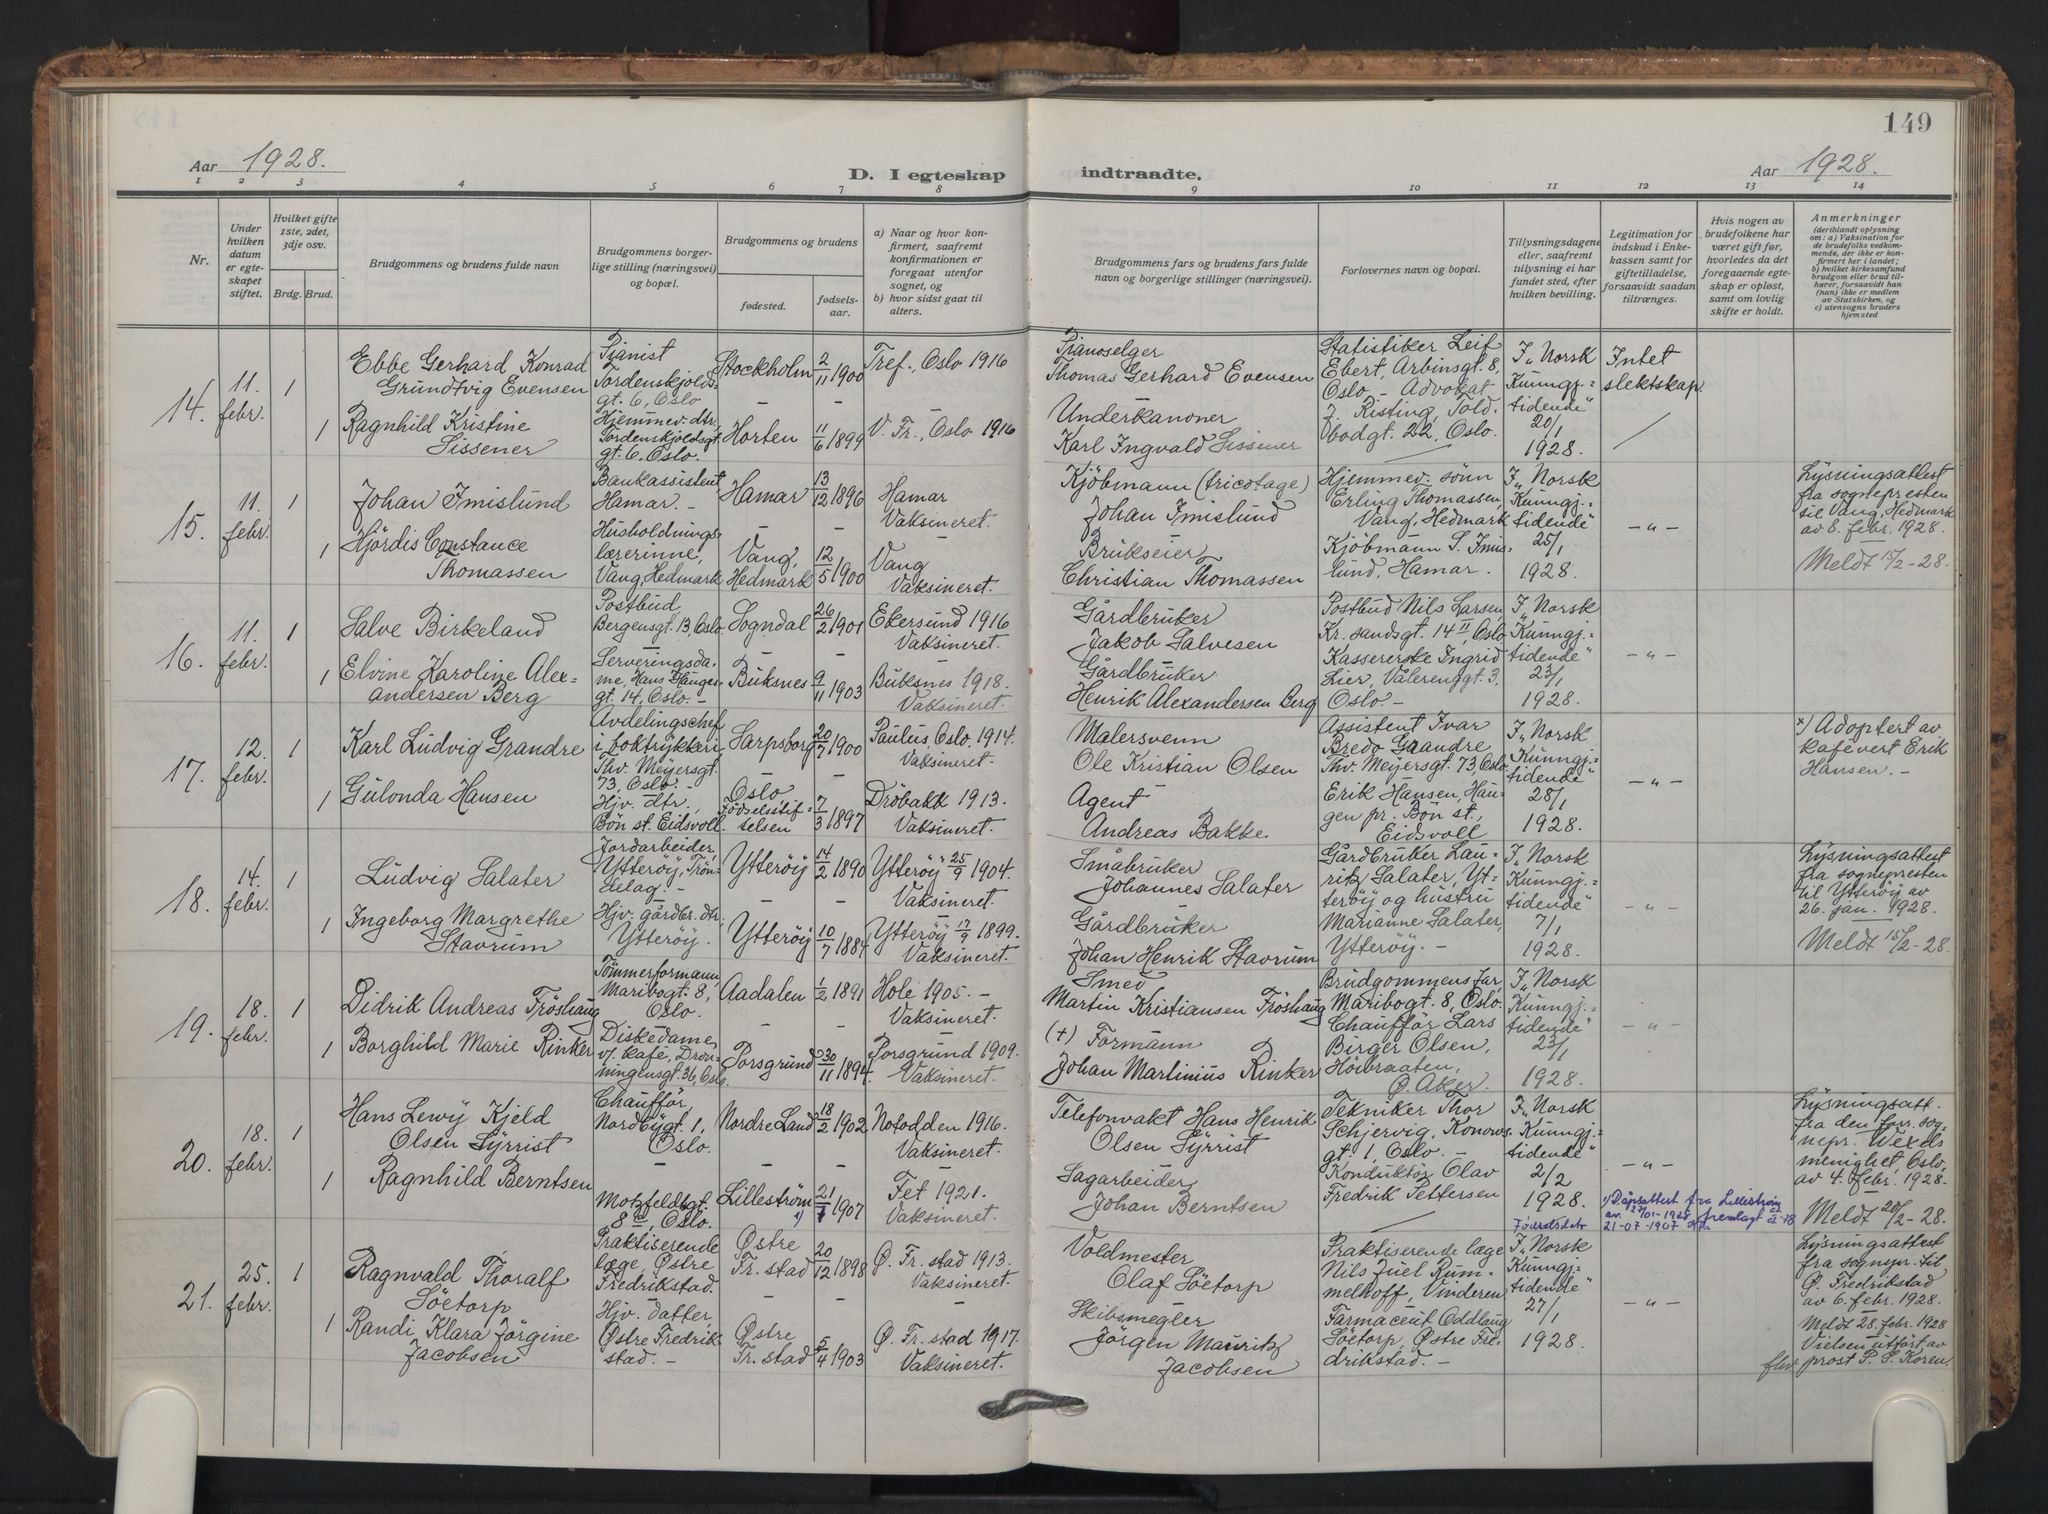 149
Aar 1928.
D. I egteskap indtraadte.
Aar 1928.
1 2 3 4 5 6 7 8 9 10 11 12 13 14
Nr.
Under hvilken datum er egteskapet stiftet.
Hvilket gifte 1ste, 2det, 3dje osv.
Brdg. Brud.
Brudgommens og brudens fulde navn
Brudgommens borgerlige stilling (næringsvei) og bopæl.
Brudgommens og brudens
fødested.
fødselsaar.
a) Naar og hvor konfirmert, saafremt konfirmationen er foregaat utenfor sognet, og
b) hvor sidst gaat til alters.
Brudgommens fars og brudens fars fulde navn og borgerlige stillinger (næringsvei).
Forlovernes navn og bopæl.
Tillysningsdagene eller, saafremt tillysning ei har fundet sted, efter hvilken bevilling.
Legitimation for indskud i Enkekassen samt for giftetilladelse, forsaavidt saadan tiltrænges.
Hvis nogen av brudefolkene har været gift før, hvorledes da det foregaaende egteskap er opløst, samt om lovlig skifte er holdt.
Anmerkninger
(deriblandt oplysning om: a) Vaksination for de brudefolks vedkommende, der ikke er konfirmert her i landet; b) hvilket kirkesamfund brudgom eller brud tilhører, forsaavidt han (hun) ikke er medlem av Statskirken, og c) utensogns bruders hjemsted
14. 11. febr. 1
Ebbe Gerhard Konrad
Grundtvig Evensen
Pianist
Tordenskjolds-
gt. 6, Oslo
Stockholm 2/11 1900
Tref., Oslo 1916
Pianoselger
Thomas Gerhard Evensen
1 Ragnhild Kristine
Sissener
Hjemmev. dtr,
Tordenskjoldsgt.
gt. 6. Oslo.
Horten 11/6 1899
V. Fr., Oslo 1916
Underkanoner
Karl Ingvald Sissener
Statistiker Leif
Ebert, Arbinsgt. 8,
Oslo – Advokat
J. Risting, Told-
bodgt. 22, Oslo.
I „Norsk
Kunngj.-
tidende“
20/1
1928.
Intet
slektskap
15. 11. febr. 1
Johan Imislund
Bankassistent
Hamar. –
Hamar 13/12 1896
Hamar
Vaksineret.
Kjöbmann (tricotage)
Johan Imislund
1 Hjördis Constance
Thomassen
Husholdnings-
lærerinne,
Vang, Hedmark
Vang,
Hedmark 12/5 1900
Vang
Vaksineret.
Brukseier
Christian Thomassen
Hjemmev. sönn
Erling Thomassen,
Vang, Hedmark
Kjöbmann S. Imis-
lund, Hamar.
I „Norsk
Kunngj.-
tidende“
25/1
1928.
– „ –
Lysningsattest
fra sognepresten
til Vang, Hedmark
av 8. febr. 1928.
Meldt 15/2 – 28.
16. 11. febr. 1
Salve Birkeland
Postbud,
Bergensgt. 13, Oslo
Sogndal 26/2 1901
Ekersund 1916
Vaksineret.
Gårdbruker
Jakob Salvesen
1 Elvine Karoline Alex-
andersen Berg
Serveringsda-
me, Hans Hauges-
gt. 14, Oslo. –
Buksnes 9/11 1903
Buksnes 1918.
Vaksineret.
Gårdbruker
Henrik Alexandersen Berg
Postbud Nils Larsen
Kr. sandsgt. 14 II, Oslo
Kassererske Ingrid
Lier, Vålerenggt. 3,
Oslo. –
I „Norsk
Kunngj.-
tidende“
23/1
1928.
– „ –
17. 12. febr. 1
Karl Ludvig Grandre
Avdelingschef
i boktrykkeri
Thv. Meyersgt.
73, Oslo. –
Sarpsborg 20/7 1900
Paulus, Oslo, 1914.
Vaksineret.
Malersvenn
Ole Kristian Olsen
1 Gulonda Hansen
Hjv. dtr.,
Bön st. Eidsvoll.
Oslo
Födselsstif-
telsen 7/3 1897
Dröbakk 1913.
Vaksineret.
Agent
Andreas Bakke
Assistent Ivar
Bredo Grandre
Thv. Meyersgt. 73, Oslo
Erik Hansen, Hau-
gen pr. Bön st.,
Eidsvoll
I „Norsk
Kunngj.-
tidende“
28/1
1928.
– „ –
x) Adoptert av
kafévert Erik
Hansen. –
18. 14. febr. 1
Ludvig Salater
Jordarbeider
Ytteröy, Trön-
delag –
Ytteröy 14/2 1890
Ytteröy 25/9 1904.
Vaksineret.
Småbruker
Johannes Salater
1 Ingeborg Margrethe
Stavrum
Hjv. gårdbr. dtr,
Ytteröy.
Ytteröy 10/7 1884
Ytteröy 17/9 1899.
Vaksineret.
Gårdbruker
Johan Henrik Stavrum
Gårdbruker Lau-
ritz Salater, Yt-
teröy og hustru
Marianne Salater,
Ytteröy. –
I „Norsk
Kunngj.-
tidende“
7/1
1928.
– „ –
Lysningsattest
fra sognepresten
til Ytteröy av
26. jan. 1928.
Meldt 15/2 – 28.
19. 18. febr. 1
Didrik Andreas Fröshaug
Tömmerformann,
Maribogt. 8,
Oslo.
Aadalen 1/2 1891
Hole 1905. –
Vaksineret.
Smed
Martin Kristiansen Fröshaug
1 Borghild Marie Rinker
Diskedame,
v/ kafe, Dron-
ningensgt. 36, Oslo.
Porsgrund 30/11 1894.
Porsgrund 1909.
Vaksineret.
(+) Formann
Johan Martinius Rinker
Brudgommens far,
Maribogt. 8, Oslo.
Chaufför Lars
Birger Olsen,
Höibraaten,
Ö. Aker.
I „Norsk
Kunngj.-
tidende“
23/1
1928.
– „ –
20. 18. febr. 1
Hans Lewy Kjeld
Olsen Syrrist
Chauffør,
Nordbygt. 1,
Oslo.
Nordre Land 18/2 1902
Notodden 1916.
Vaksineret.
Telefonvakt Hans Henrik
Olsen Syrrist
1 Ragnhild Berntsen
–
Motzfeldtgt.
8, Oslo.
Lilleström 1) 21/7 1907
Fet 1921.
Vaksineret.
Sagarbeider
Johan Berntsen
Tekniker Thor
Schjervig, Konows-
gt. 1, Oslo. –
Konduktör Olav
Fredrik Pettersen
I „Norsk
Kunngj.-
tidende“
2/2
1928.
– „ –
1) Dåpsattest fra Lilleström
av 27/01-1928 fremlagt
Födselsdato
21-07-1907
Lysningsatt.
fra den for. sog-
nepr. Wexels
menighet, Oslo,
av 4. febr. 1928.
Meldt 20/2 – 28.
21. 25. febr. 1
Ragnvald Thoralf
Söetorp
Praktiserende
læge, Østre
Fredrikstad.
Østre
Fr. stad 20/12 1898
Ø. Fr. stad 1913.
Vaksineret.
Voldmester
Olaf Söetorp
1 Randi Klara Jörgine
Jacobsen
Hjv. datter,
Østre Fredrik-
stad. –
Østre
Fr. stad 5/4 1903
Ø. Fr. stad 1917.
Vaksineret.
Skibsmegler
Jörgen Mauritz
Jacobsen
Praktiserende læge
Nils Juel Rum-
melhoff, Vinderen
Farmaceut Oddlaug
Söetorp, Østre Fre-
drikstad. –
I „Norsk
Kunngj.-
tidende“
27/1
1928.
– „ –
Lysningsattest
fra sognepr. til
Ø. Fredrikstad
av 6. febr. 1928.
Meldt 28. febr. 1928
Vielsen utfört av
prost P. S. Koren.